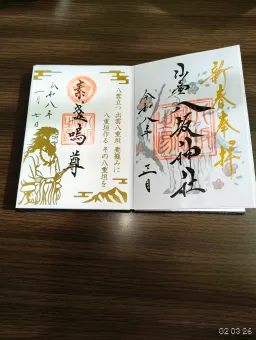 新春奉拝
八坂神社
令和八年 月
八雲立つ 出雲八重垣 妻籠みに
八重垣作る その八重垣を
素盞嗚尊
令和八年
月 日
02 03 26